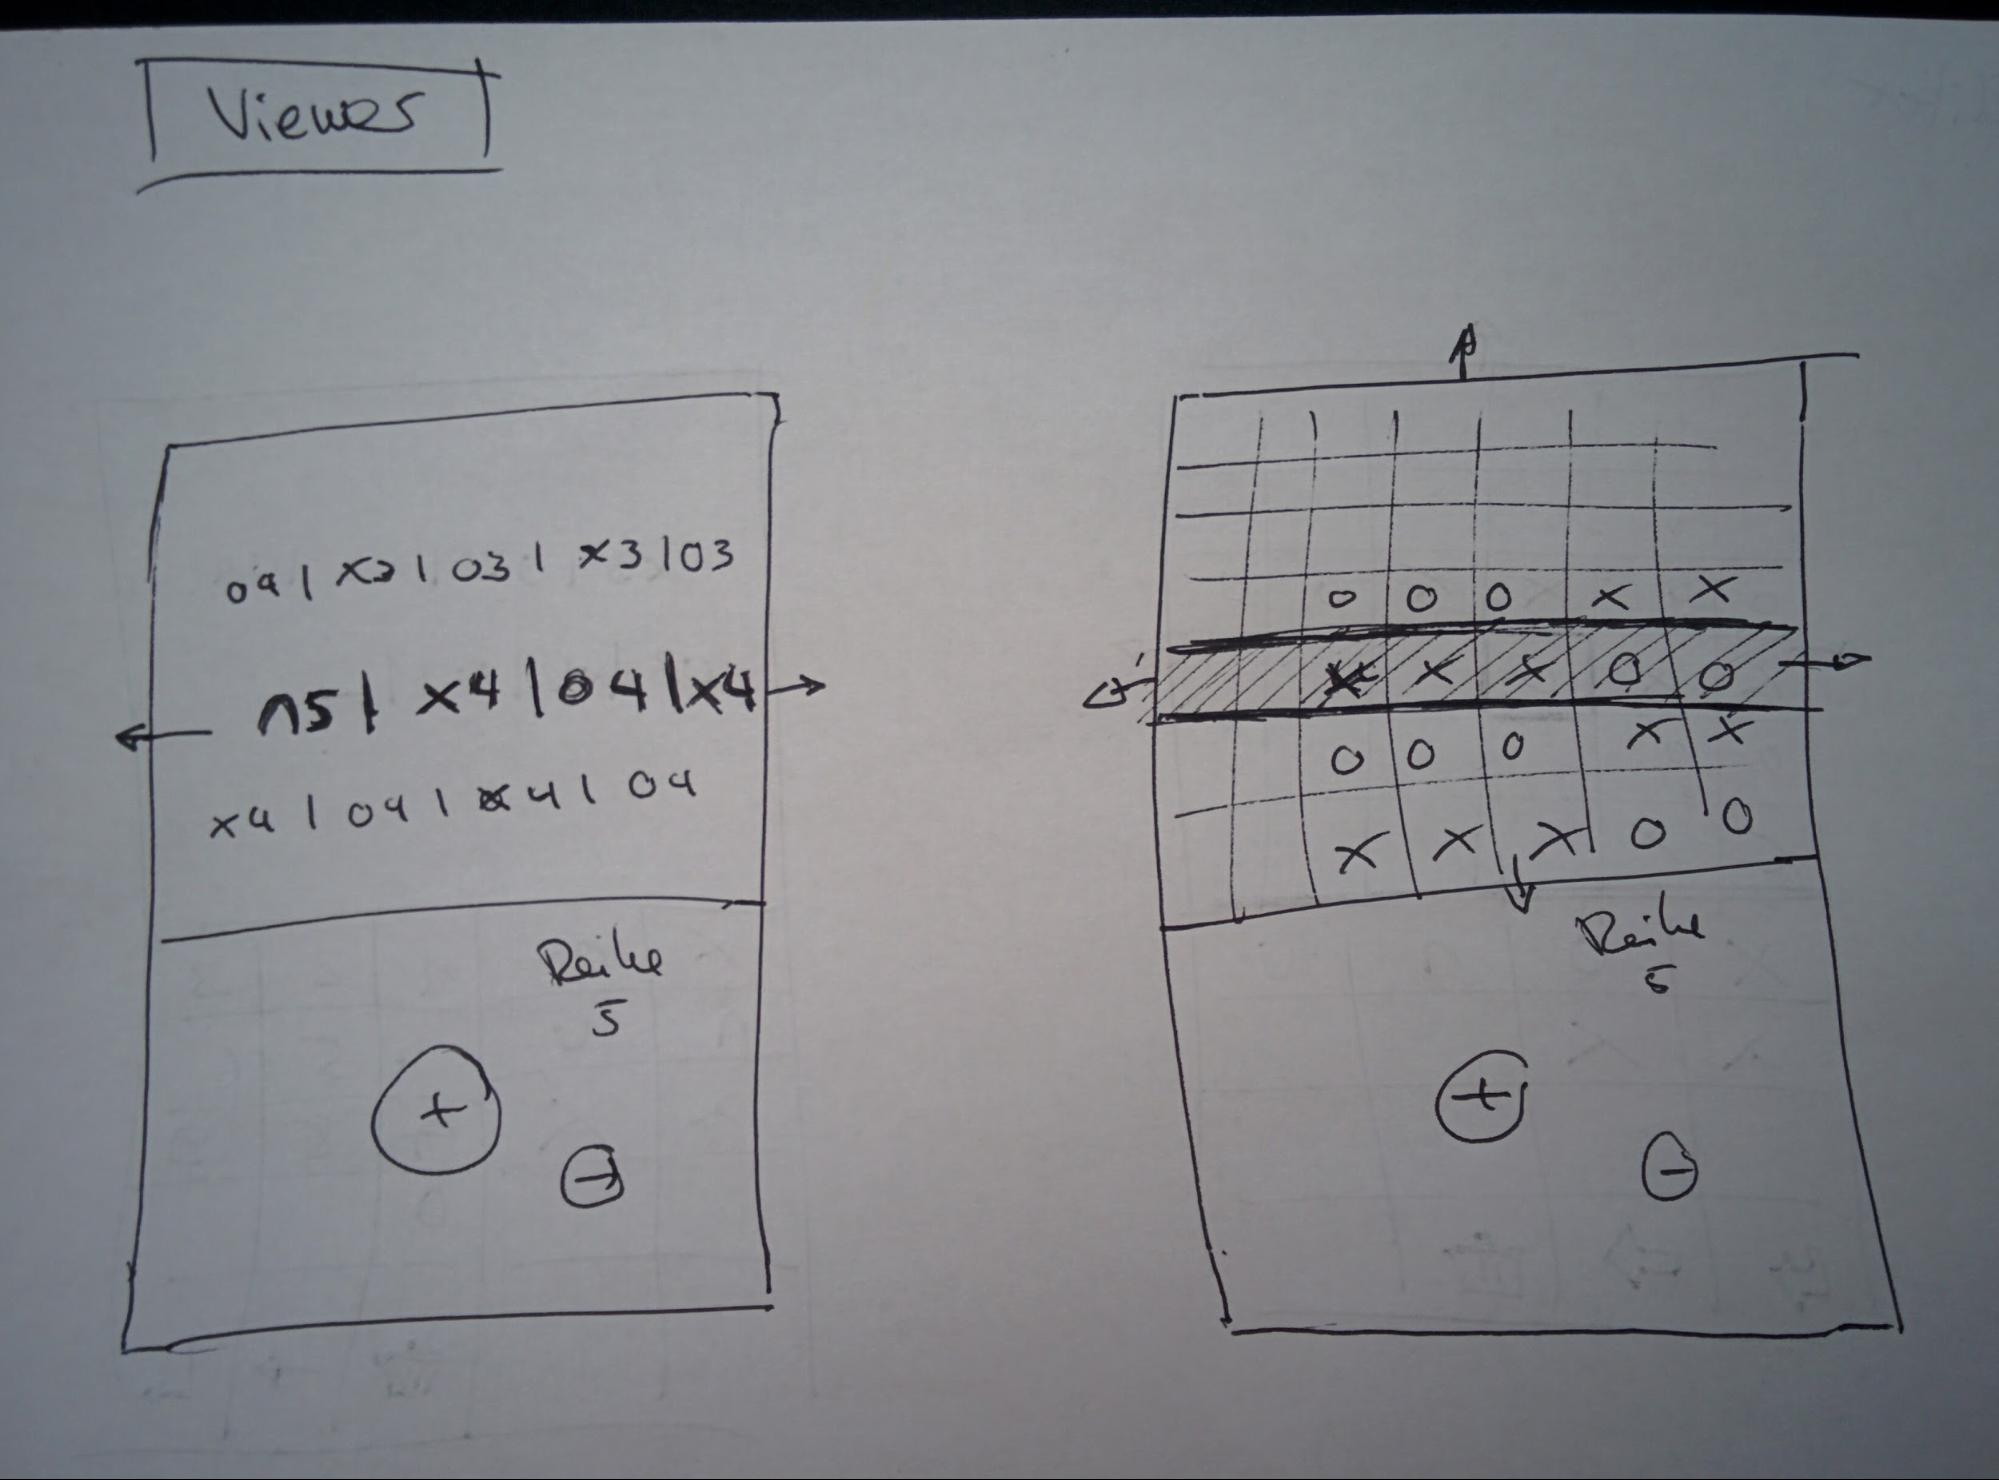 Viewer
04 | x3 | 03 | x3 | 03
n5 | x4 | 04 | x4
x4 | 04 | x4 | 04
Reihe
5
+
-
o o o x x
x x x o o
o o o x x
x x x o o
Reihe
5
+
-